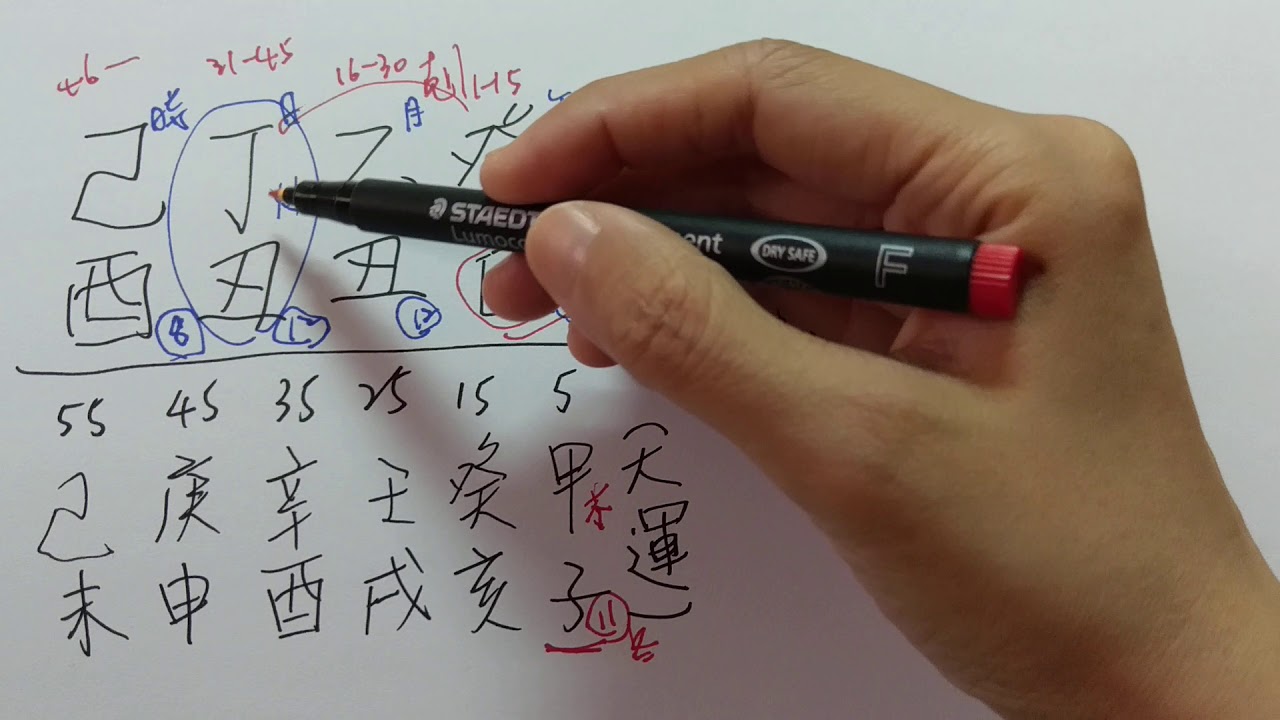 46- 31-45 16-30 1-15
時 日 月
己 丁 乙
酉 丑 丑
8 12 12
55 45 35 25 15 5
己 庚 辛 壬 癸 甲
未 申 酉 戌 亥 子
(大運)
11
STAEDT
Lumoco ent
DRY SAFE
F